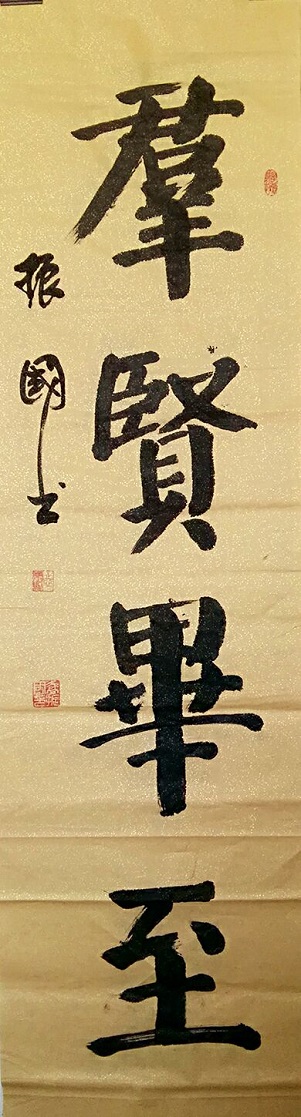 羣賢畢至
振國书